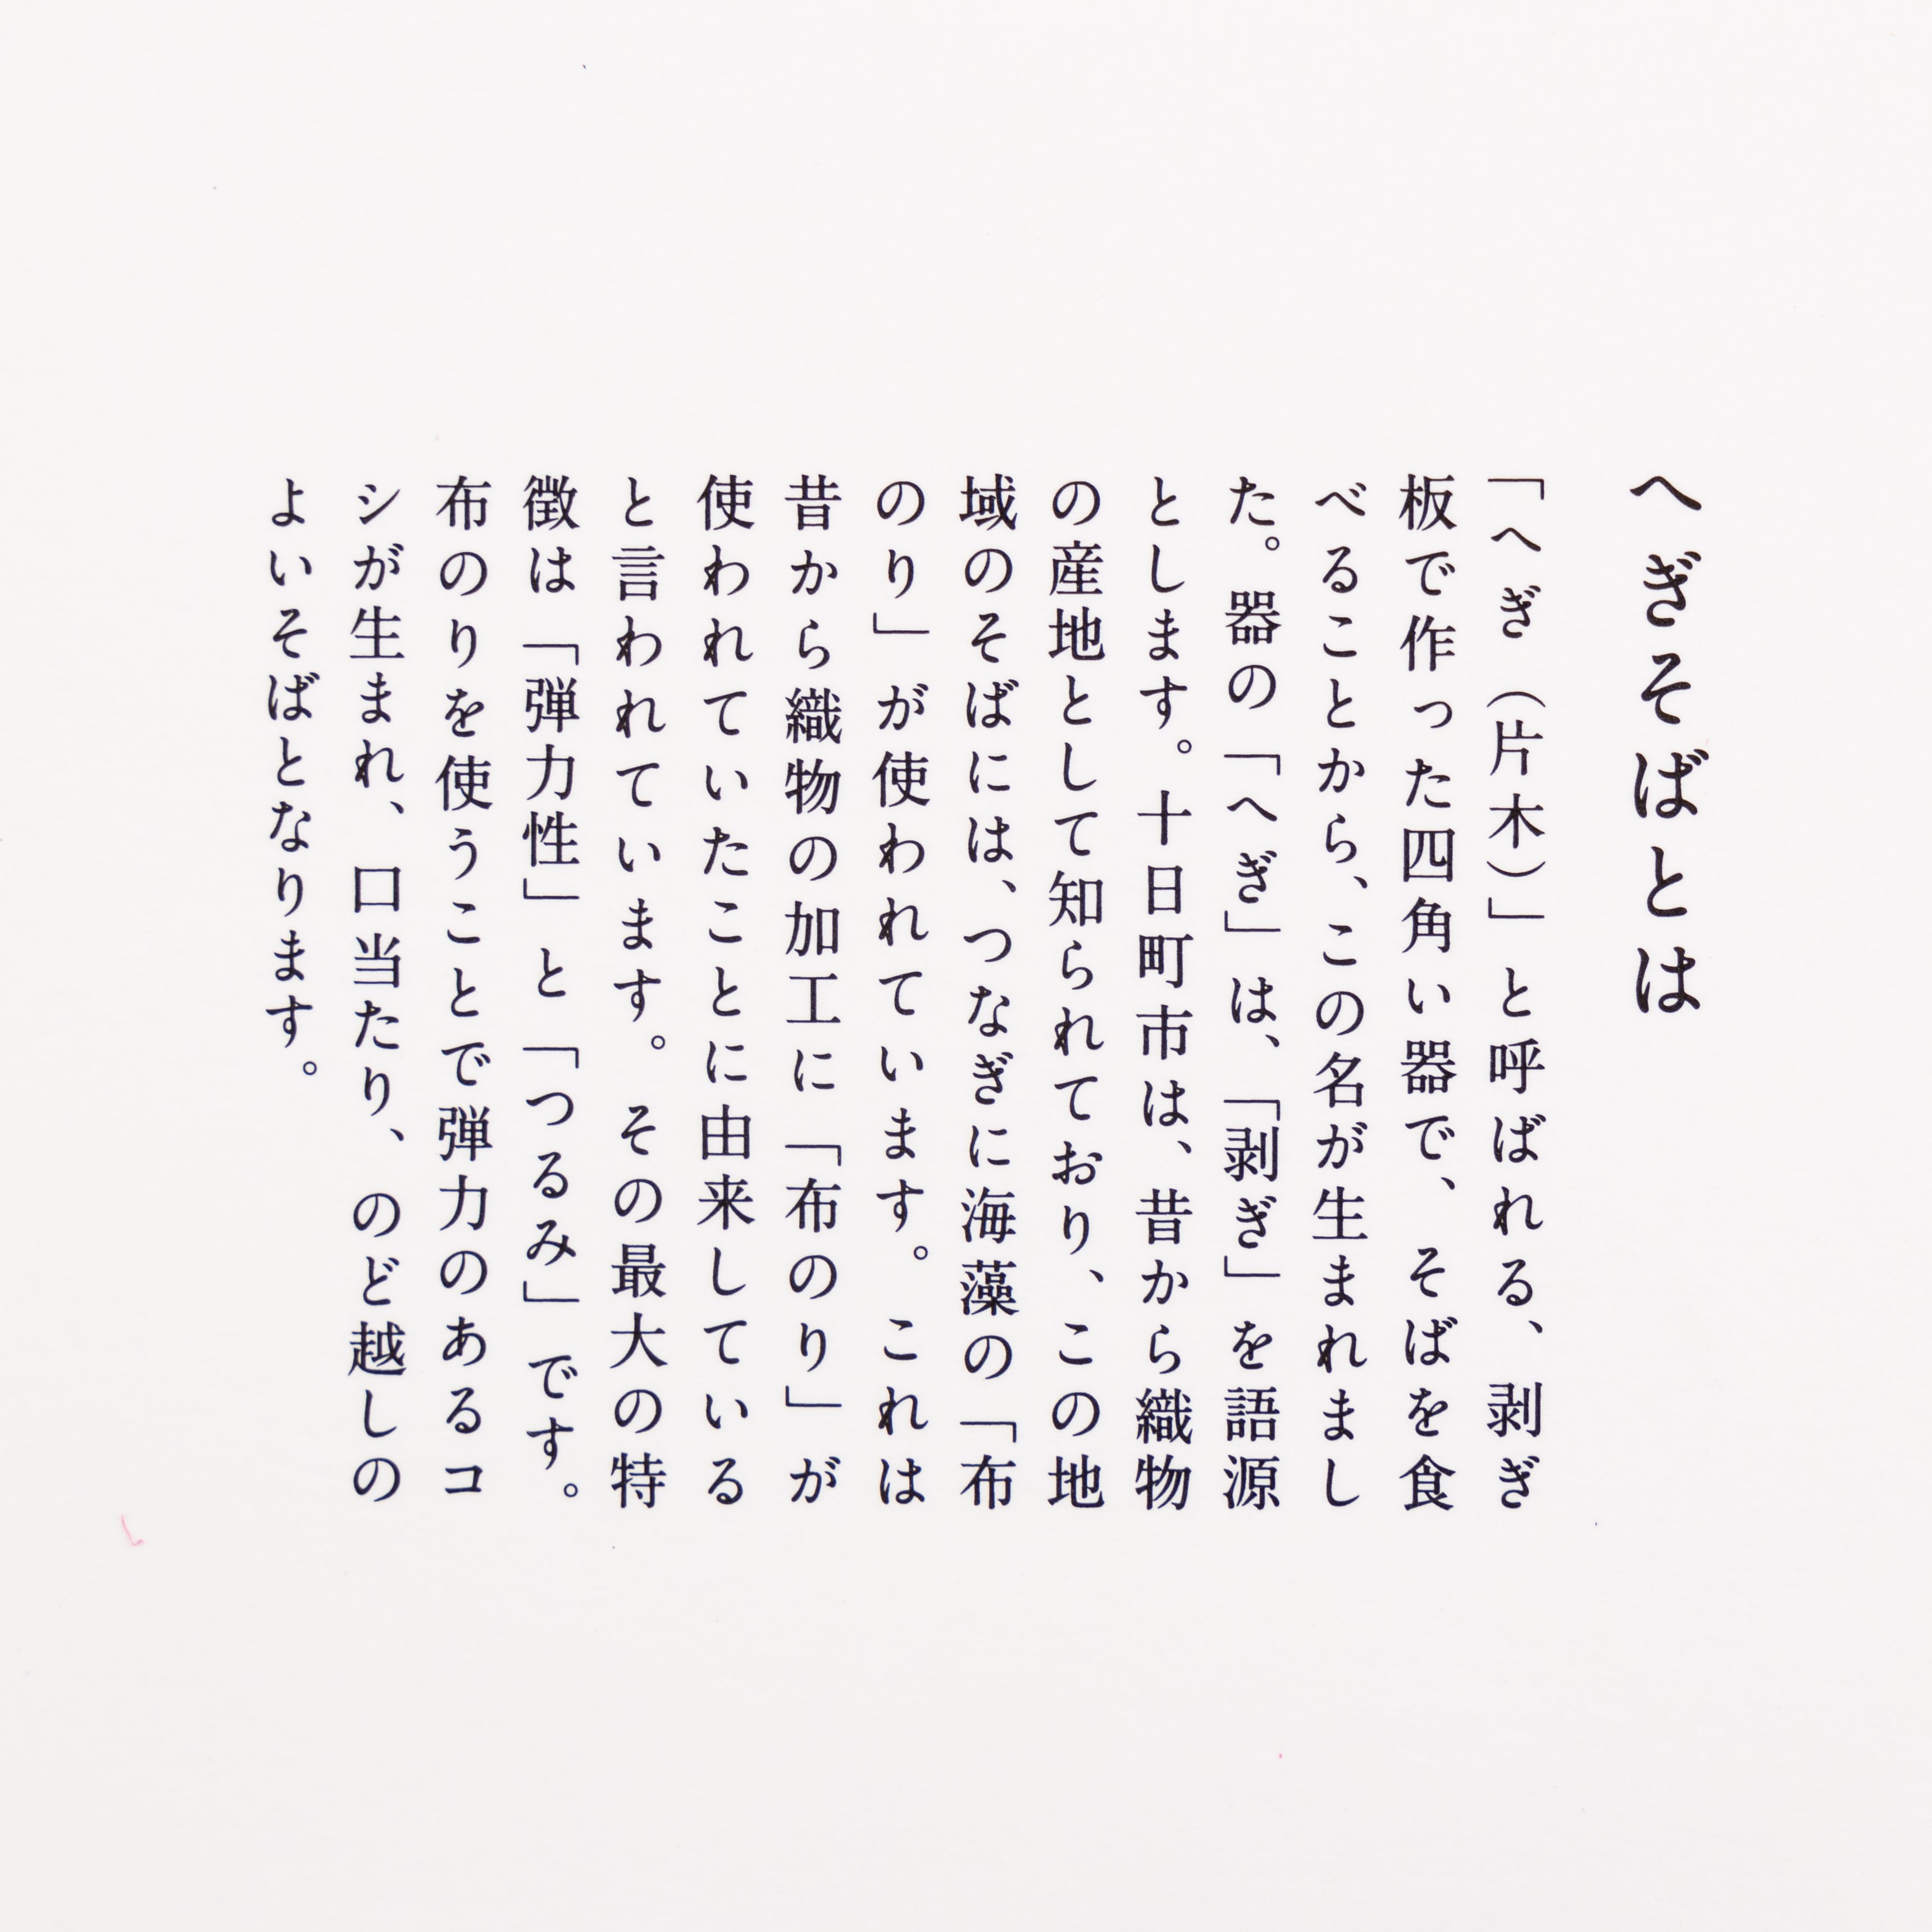 へぎそばとは
「へぎ（片木）」と呼ばれる、剥ぎ
板で作った四角い器で、そばを食
べることから、この名が生まれまし
た。器の「へぎ」は、「剥ぎ」を語源
とします。十日町市は、昔から織物
の産地として知られており、この地
域のそばには、つなぎに海藻の「布
のり」が使われています。これは
昔から織物の加工に「布のり」が
使われていたことに由来している
と言われています。その最大の特
徴は「弾力性」と「つるみ」です。
布のりを使うことで弾力のあるコ
シが生まれ、口当たり、のど越しの
よいそばとなります。